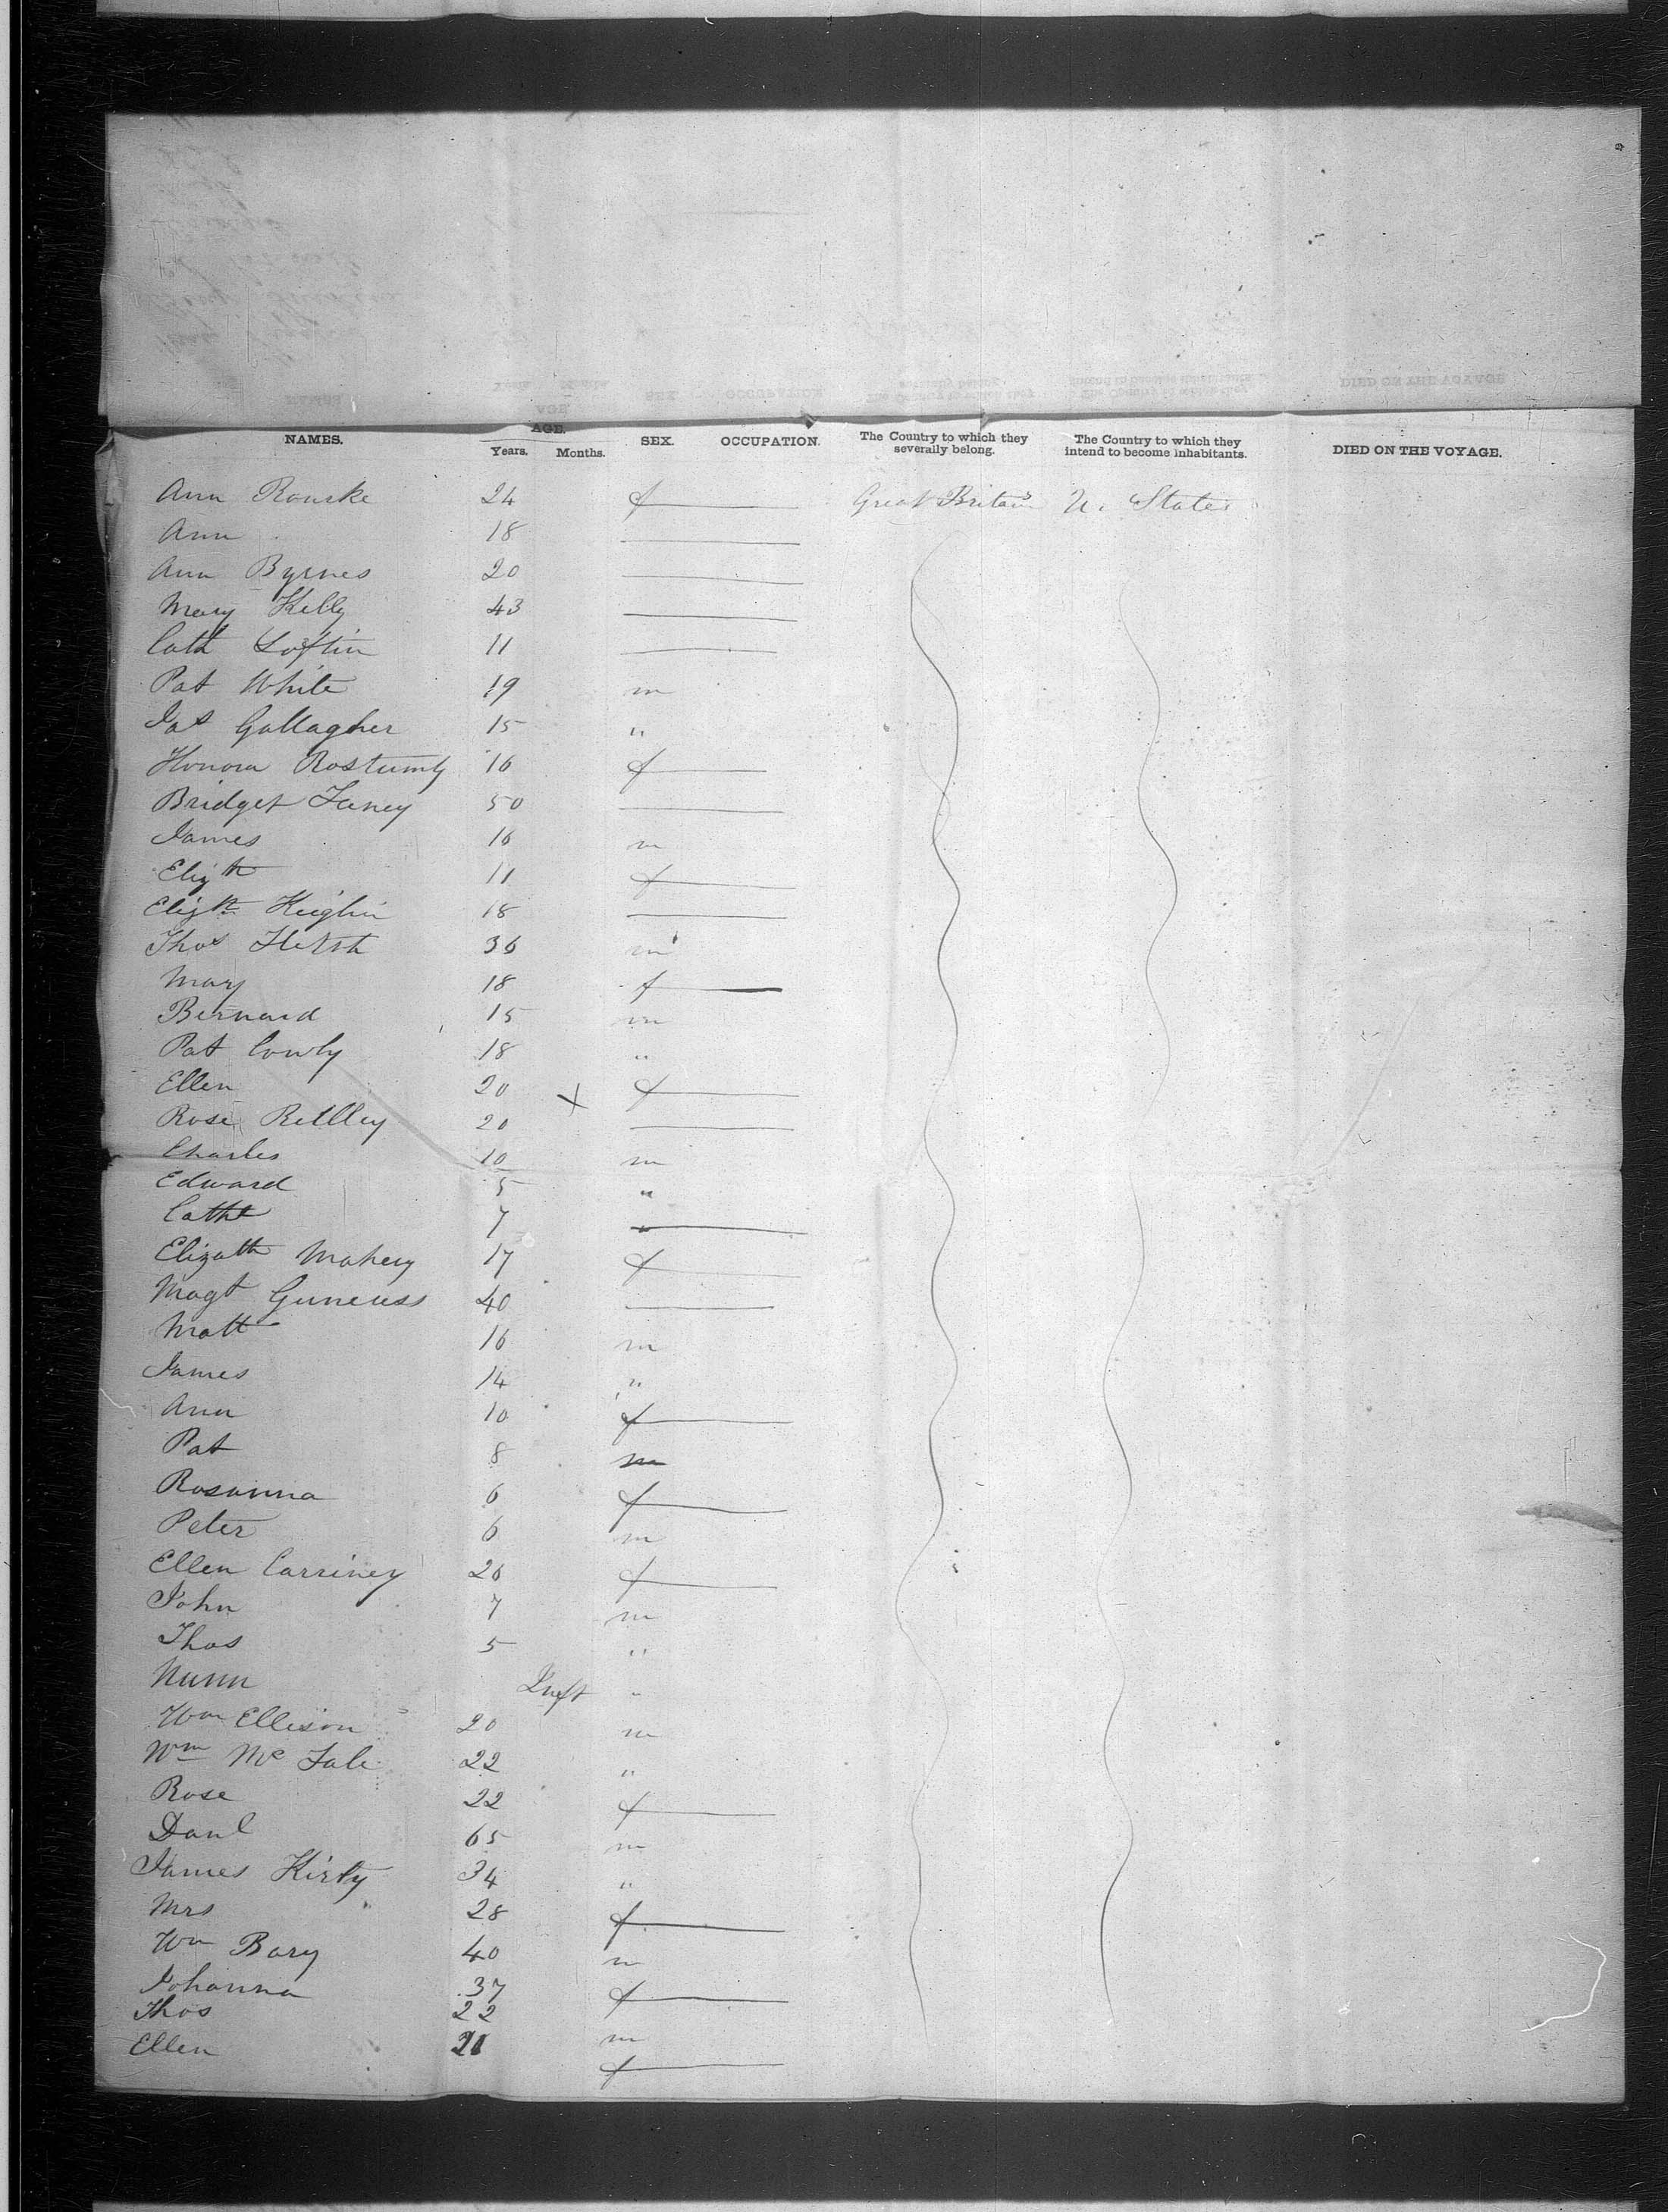 NAMES. AGE. SEX. OCCUPATION. The Country to which they severally belong. The Country to which they intend to become inhabitants. DIED ON THE VOYAGE.
Years. Months.
Ann Rourke 24 f Great Britain U. States
Ann 18
Ann Byrnes 20
Mary Kelly 43
Cath Loftin 11
Pat White 19 m
Jas Gallagher 15 "
Honora Rostumly 16 f
Bridget Faney 50
James 16 m
Elizth 11 f
Elizth Heighin 18
Thos 36 m
Mary 18 f
Bernard 15 m
Pat Cowly 18 "
Ellen 20 x f
Rose Rellley 20
Charles 10 m
Edward 5 "
Cathe 7
Elizath Mahery 17 f
Magt Guneuss 40
Matt 16 m
James 14 "
Ann 10 f
Pat 8 m
Rosanna 6 f
Peter 6 m
Ellen Carriney 26 f
John 7 m
Thos 5 "
Inft "
Wm Ellison 20 m
Wm Mc 22 "
Rose 22 f
Danl 65 m
James Kirty 34 "
Mrs 28 f
Wm Bary 40 m
Johanna 37 f
Thos 22 m
Ellen f